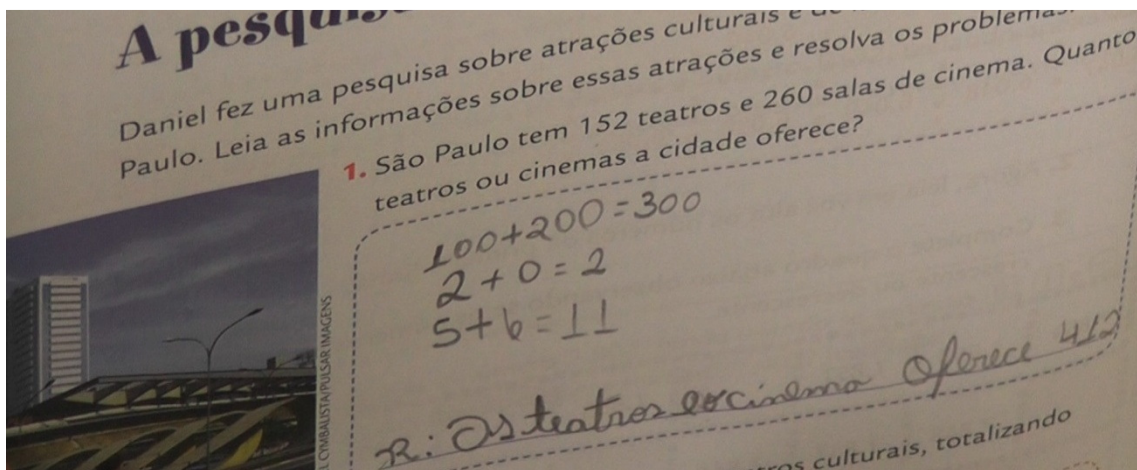 A pesquisa
Daniel fez uma pesquisa sobre atrações culturais e de
Paulo. Leia as informações sobre essas atrações e resolva os problemas.
1. São Paulo tem 152 teatros e 260 salas de cinema. Quanto
teatros ou cinemas a cidade oferece?
100+200=300
2+0=2
5+6=11
R: Os teatros e o cinema oferece 412
culturais, totalizando
L CYMBALISTA/PULSAR IMAGENS